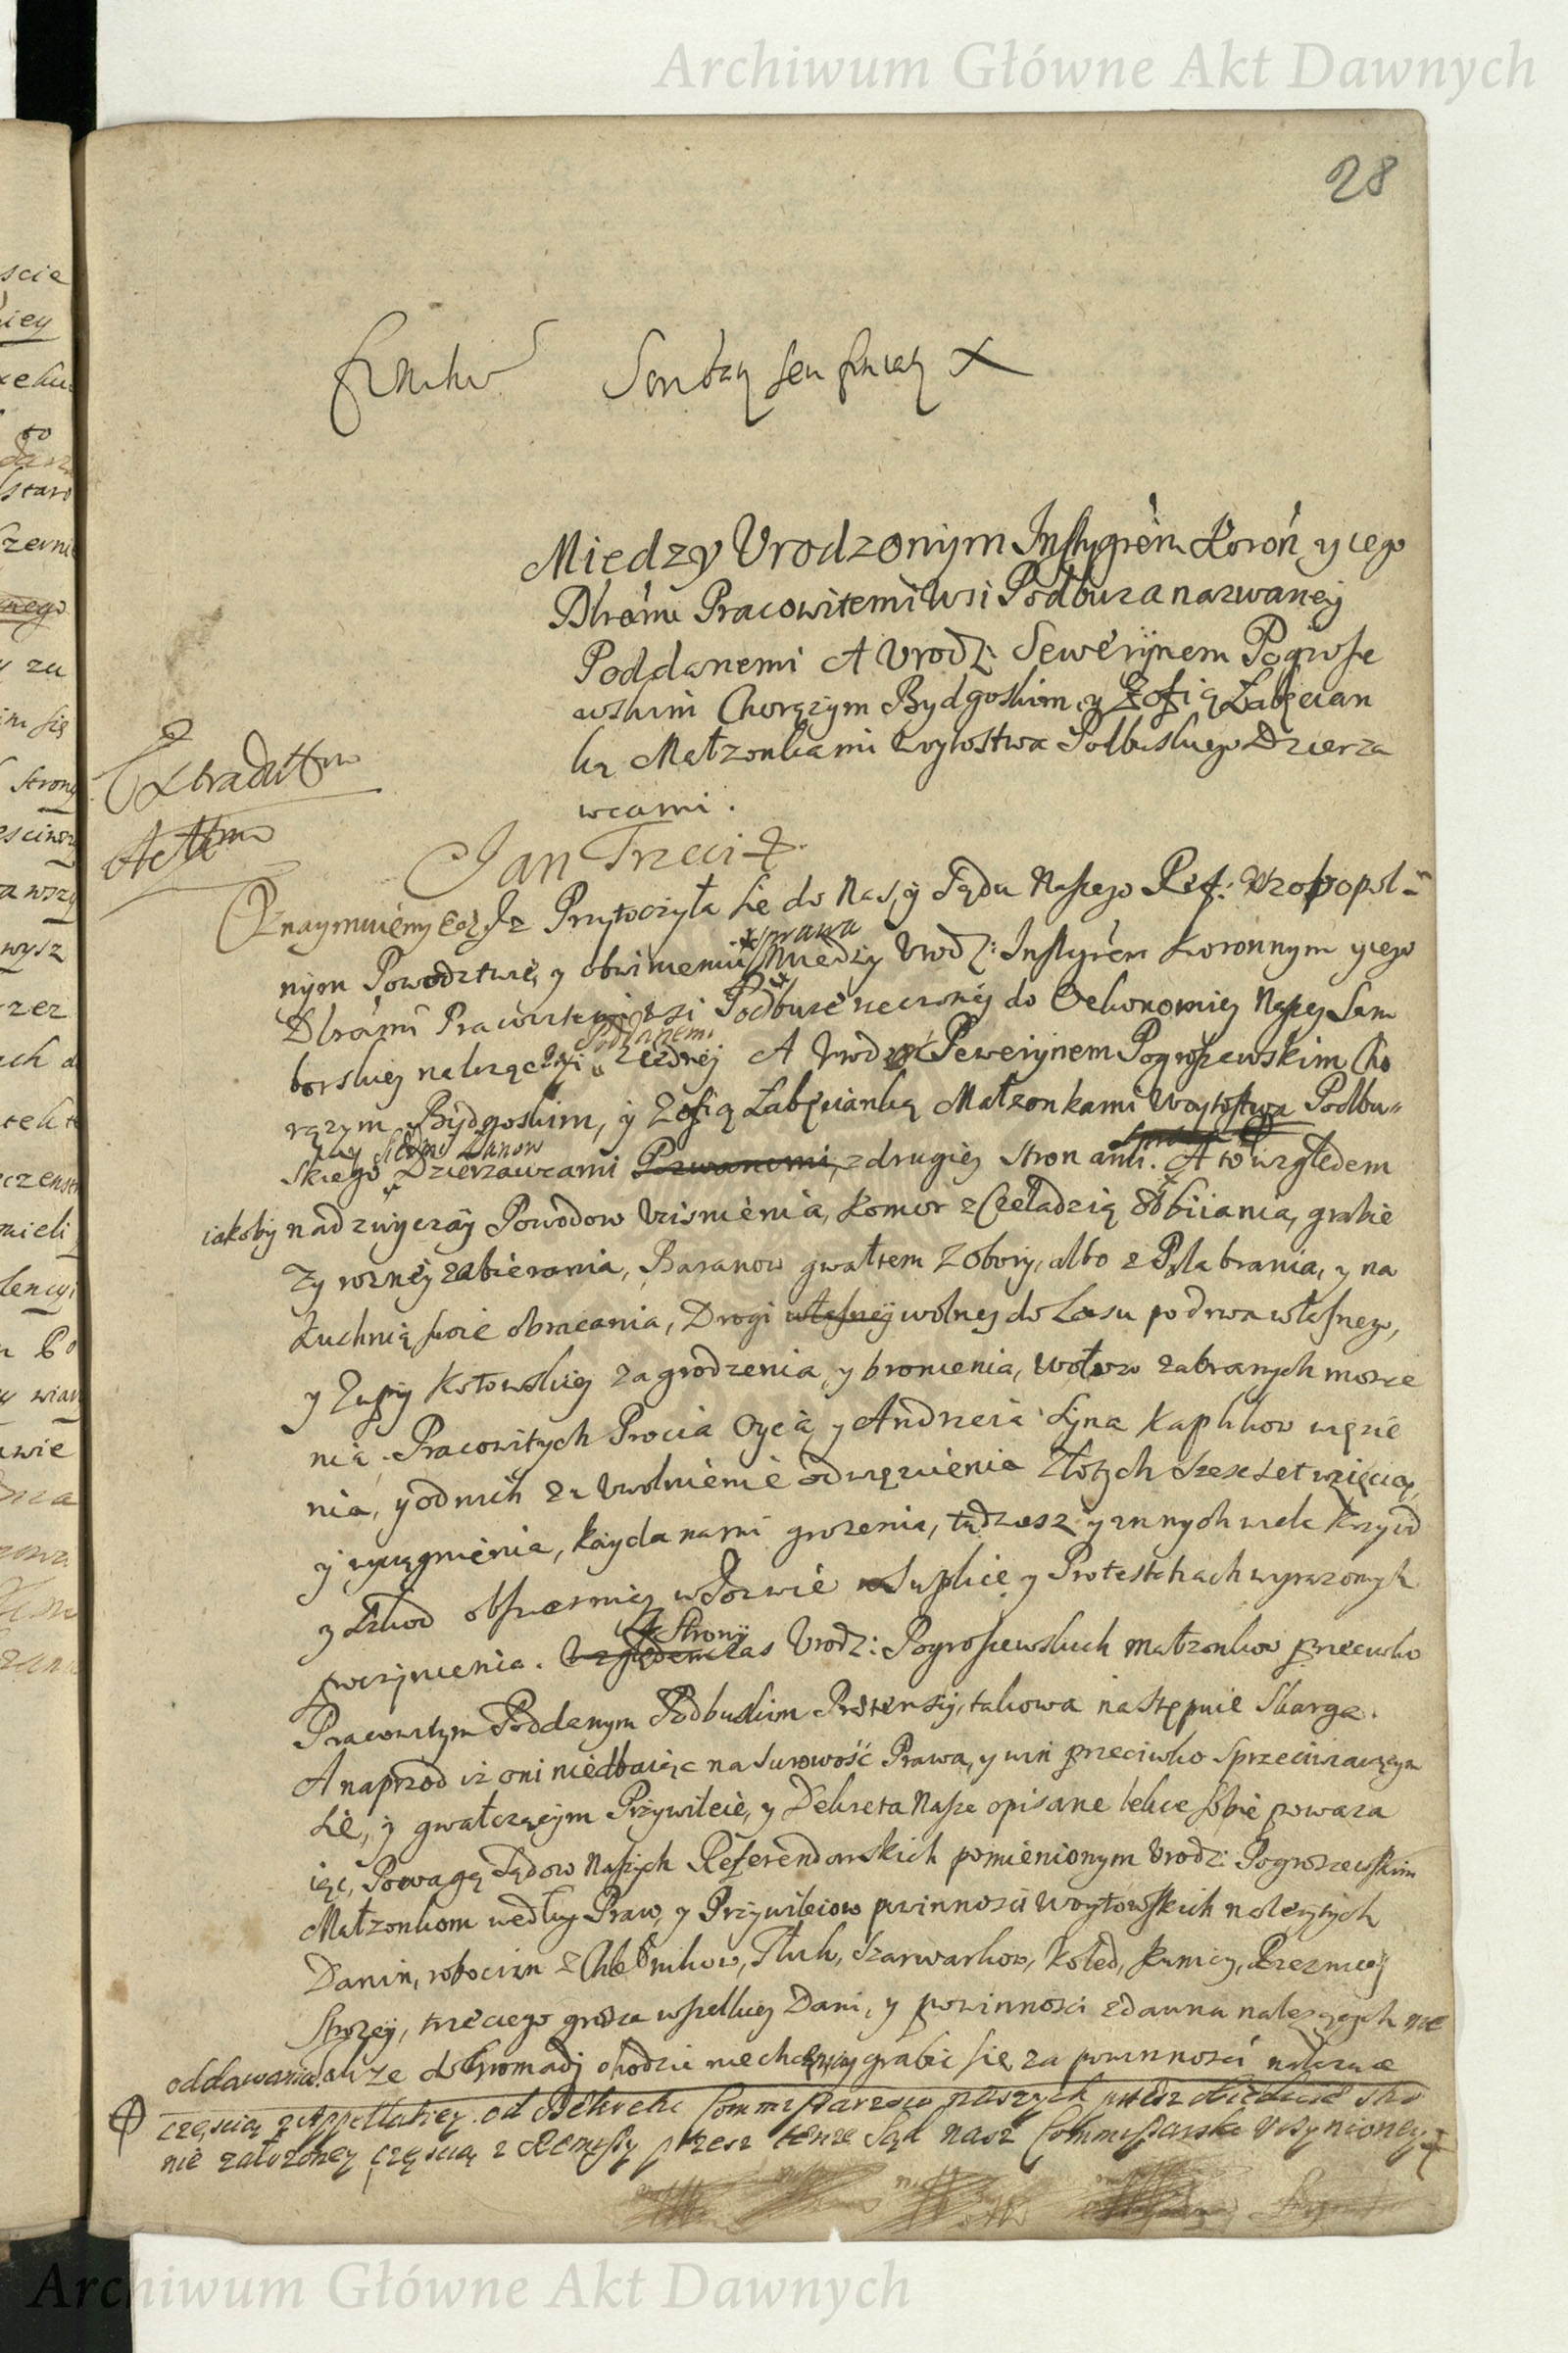 Archiwum Główne Akt Dawnych
28
Miedzy Urodzonym Instygrem Koron y iego
Dlrámi Pracowitemi Wsi Podbuża nazwaney
Poddanemi A Urodz: Sewerynem Pogrosze
wskim Chorązym Bydgoskim, y Zofią Łabęcian
ką Małzonkami Woytostwa Podbuskiego Dzierza
wcami.
Extraditum
Actum
Jan Trzeci
Oznaymuiemy Iz Przytoczyła się do Nas, y Sądu Naszego Ref:
nym Powodztwie, y obwinieniu sprawa Miedzy Urodz: Instygrem Koronnym y iego
Dlrámi Pracowitemi wsi Podbuże rzeczoney do Oekonomiey Naszey Sam
borskiey należącey Poddanemi z iedney A Urodz Sewerynem Pogroszewskim Cho
rązym Bydgoskim, y Zofią Łabęcianką Małzonkami Woytostwa Podbu
skiego Łanow Dzierzawcami Pozwanemi, z drugiey stron A to względem
iakoby nad zwyczay Powodow Ucisnienia, Komor z Czeladzią odbiiania, grabie
zy rozney zabierania, Baranow gwałtem z Obory, albo z Pola brania, y na
Kuchnię swoie obracania, Drogi własney wolney do Lasu po drwa własnego,
y Zupy Kotowskiey zagrodzenia, y bronienia, wołow zabranych morze
nia. Pracowitych Procia Oyca, y Andrzeia Syna Kaplikow więzie
nia, y od nich za Uwolnienie od więzienia Złotych szescset wzięcia,
y wyciągnienia, kaydanami grozenia, tudzesz y innych wiele krzywd
y szkod obszerniey w Pozwie Suplice y Protestach wyrazonych
poczynienia. Względem Z Strony zas Urodz: Pogroszewskich małzonkow przeciwko
Pracowitym Poddanym Podbuskim Pretensiy, takowa następuie Skarga.
A naprzod iz oni niedbaiąc na surowość Prawa, y win przeciwko sprzeciwiaiącym
się, y gwałczącym Przywileie, y Dekreta Nasze opisane lekce sobie powaza
iąc, Powagę Sądow Naszych Referendarskich pomienionym Urodz: Pogroszewskim
Małzonkom według Praw, y Przywileiow powinnosci woytowskich nalezytych
Danin, robocizn z Chlebnikow, Tłuk, Szarwarkow, Koled, Kunicy,
Strozey, trzeciego grosza wszelkiey Dani, y powinnosci zdawna nalezących nie
oddawania, ale ze do Gromady chodzic niechcą, grabic się za powinnosci nalezne
częscią z Appellatiey od Dekretu Commissarzow naszych przez obiedwie stro
nie załozoney częscią z Remissy przez tenze Sąd nasz Commissarski uczynioney
Archiwum Główne Akt Dawnych